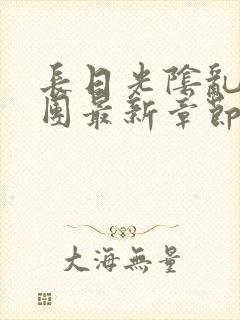 長日光陰亂
團最新章節
大海無量